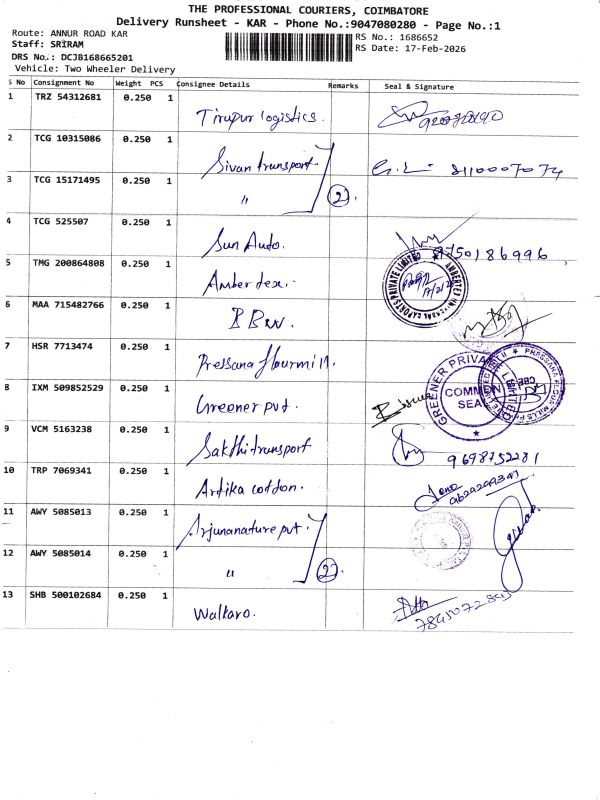 THE PROFESSIONAL COURIERS, COIMBATORE
Delivery Runsheet - KAR - Phone No.:9047080280 - Page No.:1
Route: ANNUR ROAD KAR
RS No.: 1686652
Staff: SRIRAM
RS Date: 17-Feb-2026
DRS No.: DCJB168665201
Vehicle: Two Wheeler Delivery
S No Consignment No Weight PCS Consignee Details Remarks Seal & Signature
1 TRZ 54312681 0.250 1 Tirupur logistics.
2 TCG 10315086 0.250 1 Sivan transport
3 TCG 15171495 0.250 1 " 2
4 TCG 525507 0.250 1 Sun Auto. 9750186996
5 TMG 200864808 0.250 1 Amber tex.
6 MAA 715482766 0.250 1
7 HSR 7713474 0.250 1 Pressana flourmill.
8 IXM 509852529 0.250 1 Greener pvt. GREENER PRIVATE LIMITED COMMON SEAL
9 VCM 5163238 0.250 1 Sakthi transport 9698752281
10 TRP 7069341 0.250 1 Artika cotton.
11 AWY 5085013 0.250 1 Arjunanature pvt.
12 AWY 5085014 0.250 1 " 2
13 SHB 500102684 0.250 1 Walkaro.